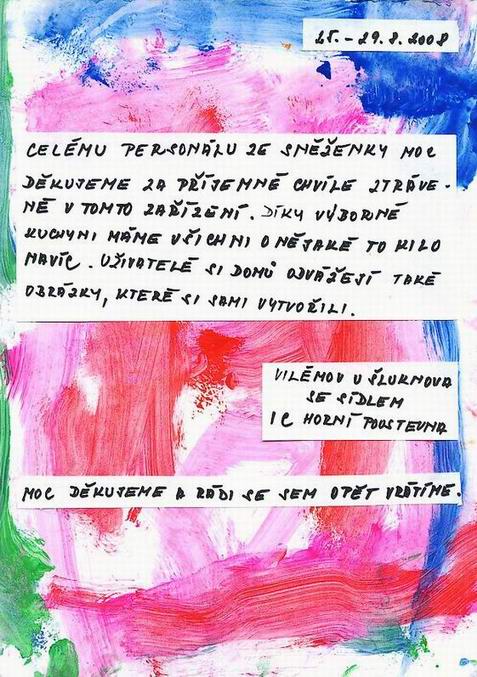 25. - 29.8.2008
CELÉMU PERSONÁLU ZE SNĚŽENKY MOC
DĚKUJEME ZA PŘÍJEMNÉ CHVÍLE ZTRÁVE-
NÉ V TOMTO ZAŘÍZENÍ. DÍKY VÝBORNÉ
KUCHYNI MÁME VŠICHNI O NĚJAKÉ TO KILO
NAVÍC. UŽIVATELÉ SI DOMŮ ODVÁŽEJÍ TAKÉ
OBRÁZKY, KTERÉ SI SAMI VYTVOŘILI.
VILÉMOV U ŠLUKNOVA
SE SÍDLEM
1C HORNÍ POUSTEVNA
MOC DĚKUJEME A RÁDI SE SEM OPĚT VRÁTÍME.